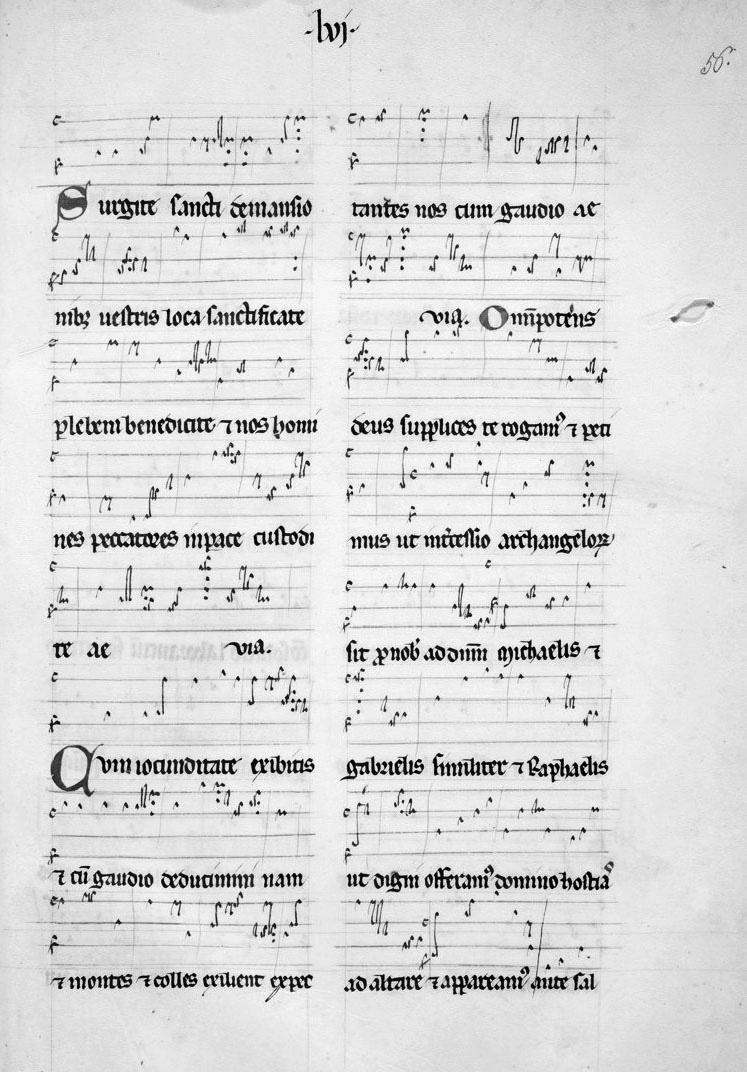 ·lvi·
56.
Surgite sancti demansio
nibꝫ uestris loca sanctificate
plebem benedicite ⁊ nos homi
nes peccatores inpace custodi
te ae via.
Cvm iocunditate exibitis
⁊ cū gaudio deducimini nam
⁊ montes ⁊ colles exilient expec
tantes nos cum gaudio ae
via. Omīpotens
deus supplices te rogamꝰ ⁊ peti
mus ut intcessio archangeloꝝ
sit ꝓ nob ad dnm Michaelis ⁊
gabrielis similiter ⁊ Raphaelis
ut digni offeramꝰ domino hostiā
ad altare ⁊ appareamꝰ ante sal